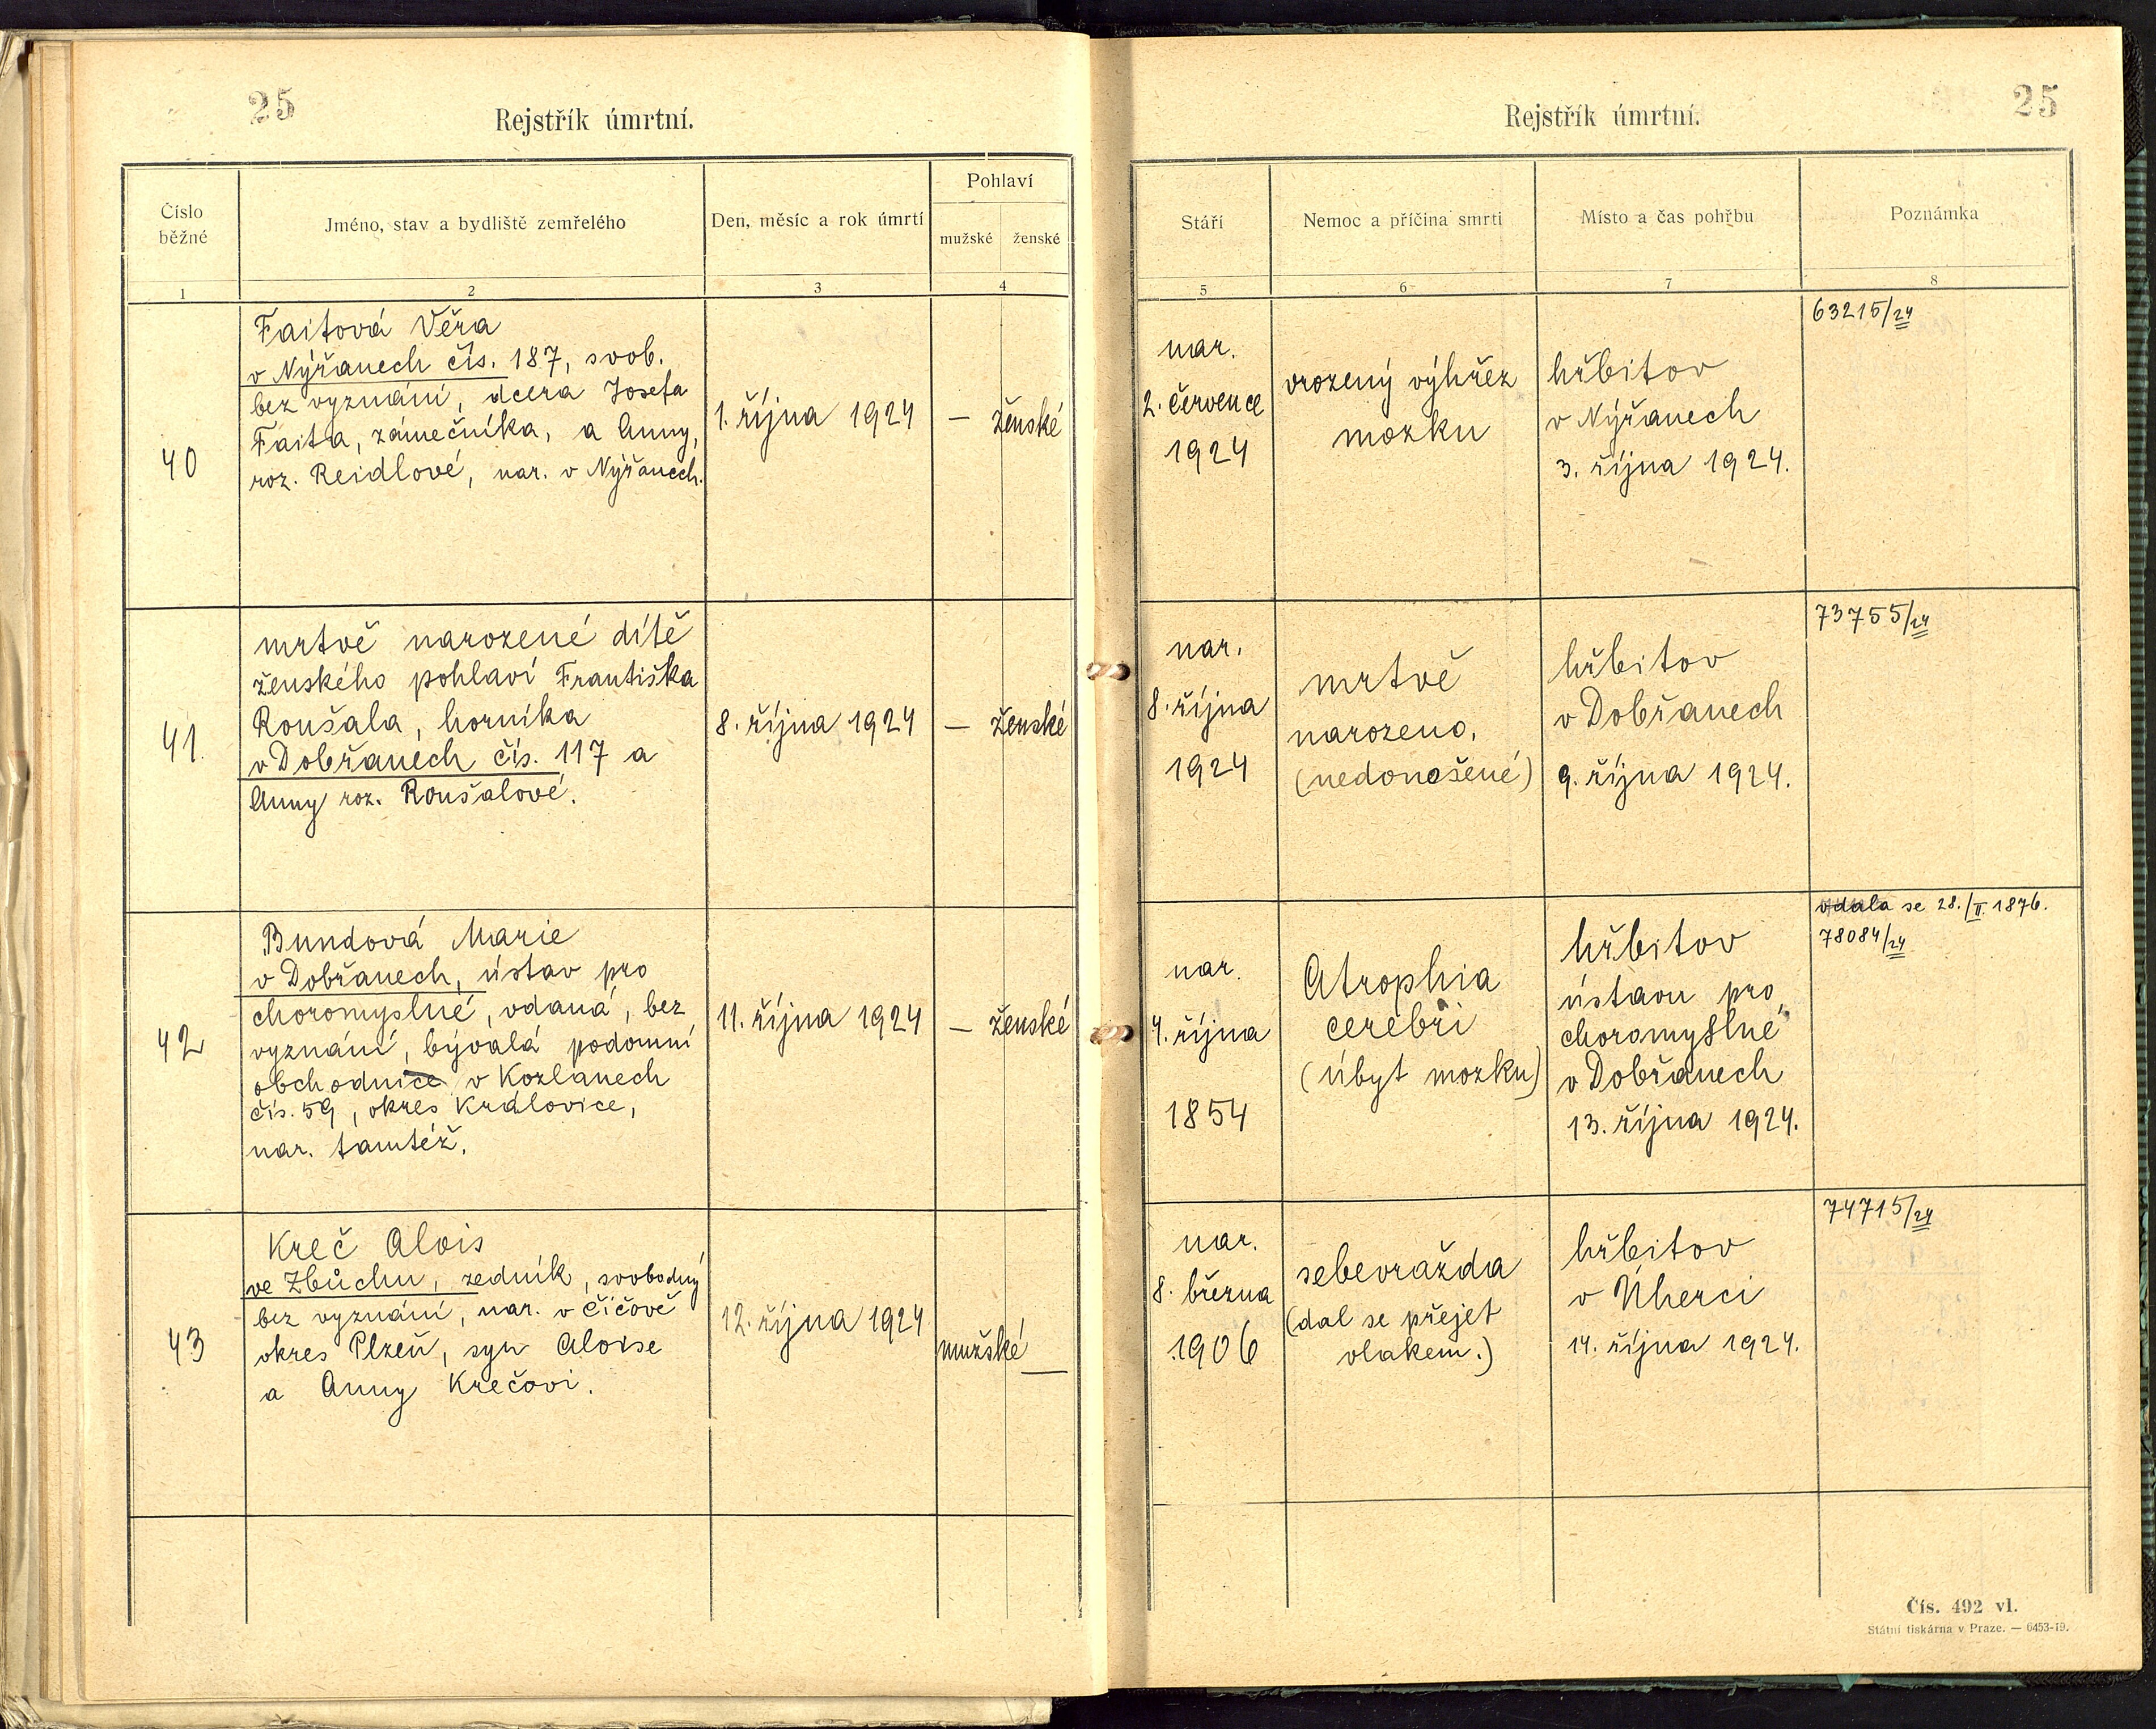 25
Rejstřík úmrtní.
Číslo
běžné
Jméno, stav a bydliště zemřelého
Den, měsíc a rok úmrtí
Pohlaví
mužské
ženské
1
2
3
4
40
Faitová Věra
v Nýřanech čís. 187, svob.
bez vyznání, dcera Josefa
Faita, zámečníka, a Anny,
roz. Reidlové, nar. v Nýřanech.
1. října 1924
—
ženské
41.
mrtvě narozené dítě
ženského pohlaví Františka
Roušala, horníka
v Dobřanech čís. 117 a
Anny roz. Roušalové.
8. října 1924
—
ženské
42
Bundová Marie
v Dobřanech, ústav pro
choromyslné, vdaná, bez
vyznání, bývalá podomní
obchodnice v Kozlanech
čís. 59, okres Kralovice,
nar. tamtéž.
11. října 1924
—
ženské
43
Kreč Alois
ve Zbůchu, zedník, svobodný
bez vyznání, nar. v Číčově
okres Plzeň, syn Aloise
a Anny Krečovi.
12. října 1924
mužské
—
Rejstřík úmrtní.
25
Stáří
Nemoc a příčina smrti
Místo a čas pohřbu
Poznámka
5
6
7
8
nar.
2. července
1924
vrozený výhřez
mozku
hřbitov
v Nýřanech
3. října 1924.
63215/24
nar.
8. října
1924
mrtvě
narozeno.
(nedonošené)
hřbitov
v Dobřanech
9. října 1924.
73755/24
nar.
4. října
1854
Atrophia
cerebri
(úbyt mozku)
hřbitov
ústavu pro
choromyslné
v Dobřanech
13. října 1924.
vdala se 28./II. 1876.
78084/24
nar.
8. března
1906
sebevražda
(dal se přejet
vlakem.)
hřbitov
v Úherci
14. října 1924.
74715/24
Čís. 492 vl.
Státní tiskárna v Praze. — 6453-19.